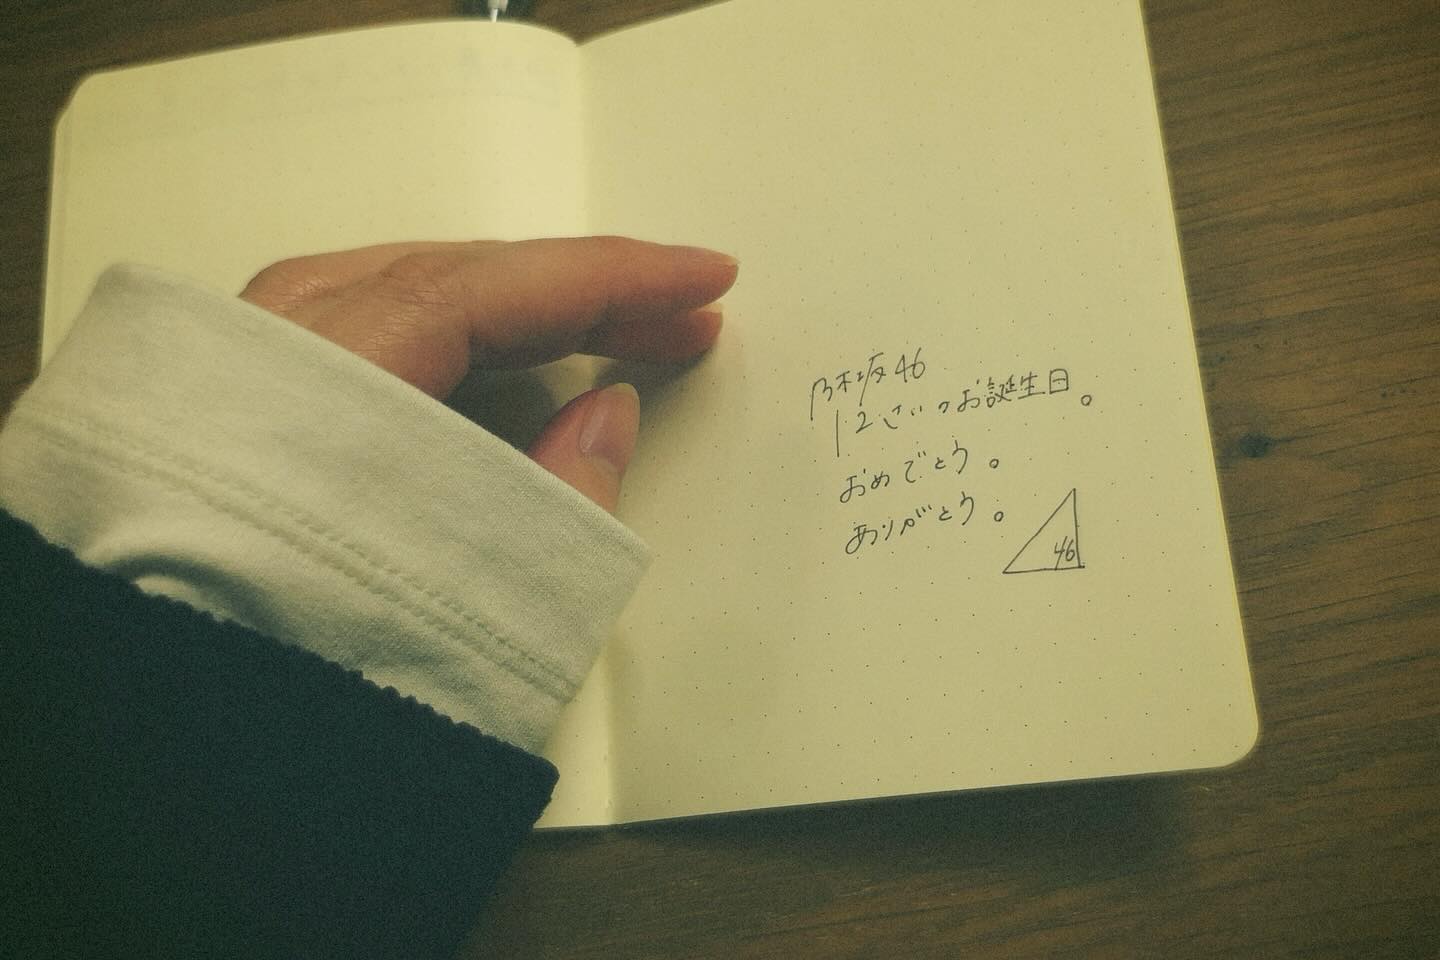 乃木坂46
12さいのお誕生日。
おめでとう。
ありがとう。
46